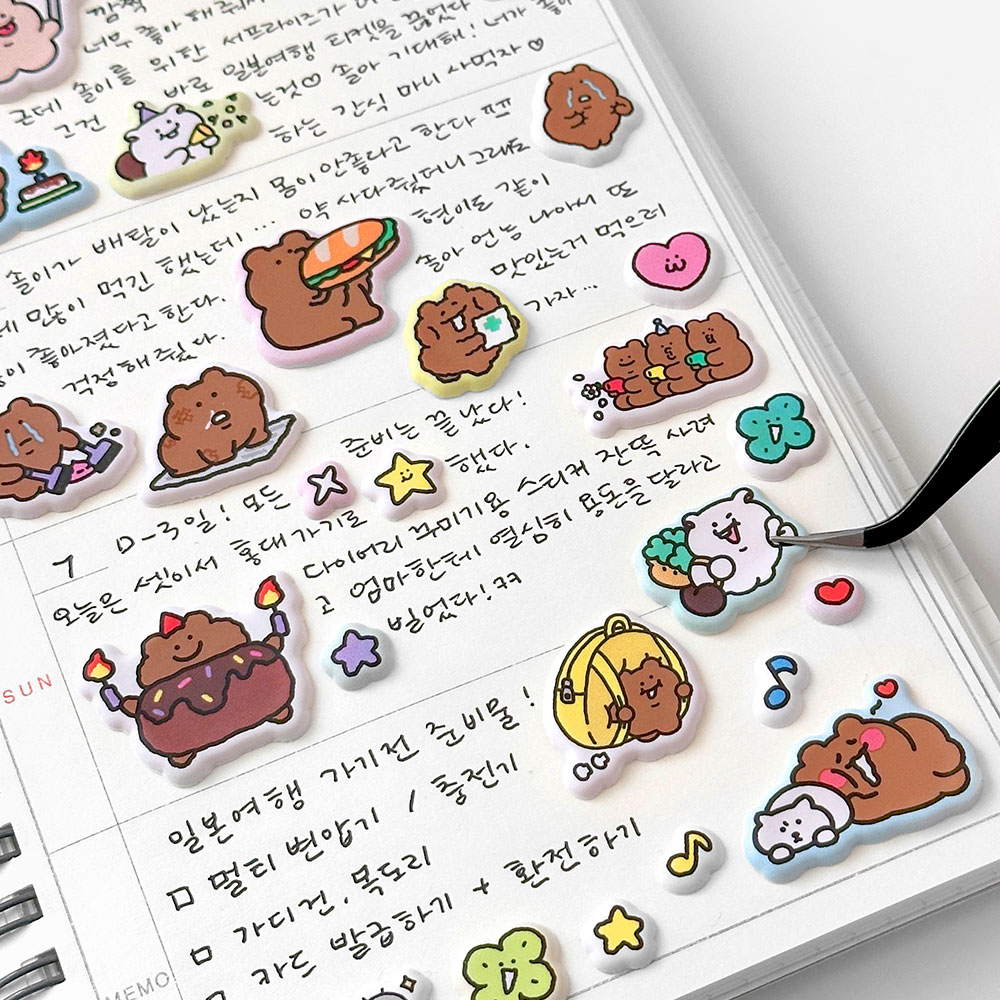 깜짝
너무 좋아해줘서
근데 솔이를 위한 서프라이즈가 더
그건 바로 일본여행 티켓을 끊었다
는것♡ 솔아 기대해! 너가 좋아
하는 간식 마니 사먹자♡
솔이가 배탈이 났는지 몸이 안좋다고 한다 ㅠㅠ
많이 먹긴 했는데... 약 사다줬더니 그래도
좋아졌다고 한다. 현이로 같이
걱정해줬다. 솔아 언능 나아서 또
맛있는거 먹으러
가자...
7 D-3일! 모든 준비는 끝났다!
오늘은 셋이서 홍대가기로 했다.
다이어리 꾸미기용 스티커 잔뜩 사려
고 엄마한테 열심히 용돈을 달라고
빌었다! ㅋㅋ
SUN
일본여행 가기전 준비물!
□ 멀티 변압기 / 충전기
□ 가디건, 목도리
□ 카드 발급하기 + 환전하기
MEMO